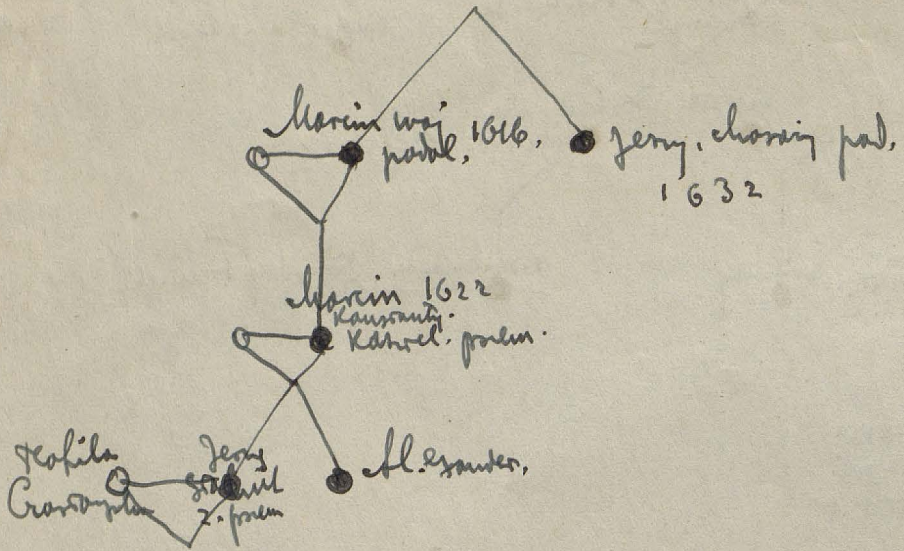 Marcin woj
podol. 1616.
Jerzy, chorąży pod.
1632
Marcin 1622
Konstanty
Kasztel. przem.
Teofila
Jerzy
z. przem
Alexander.